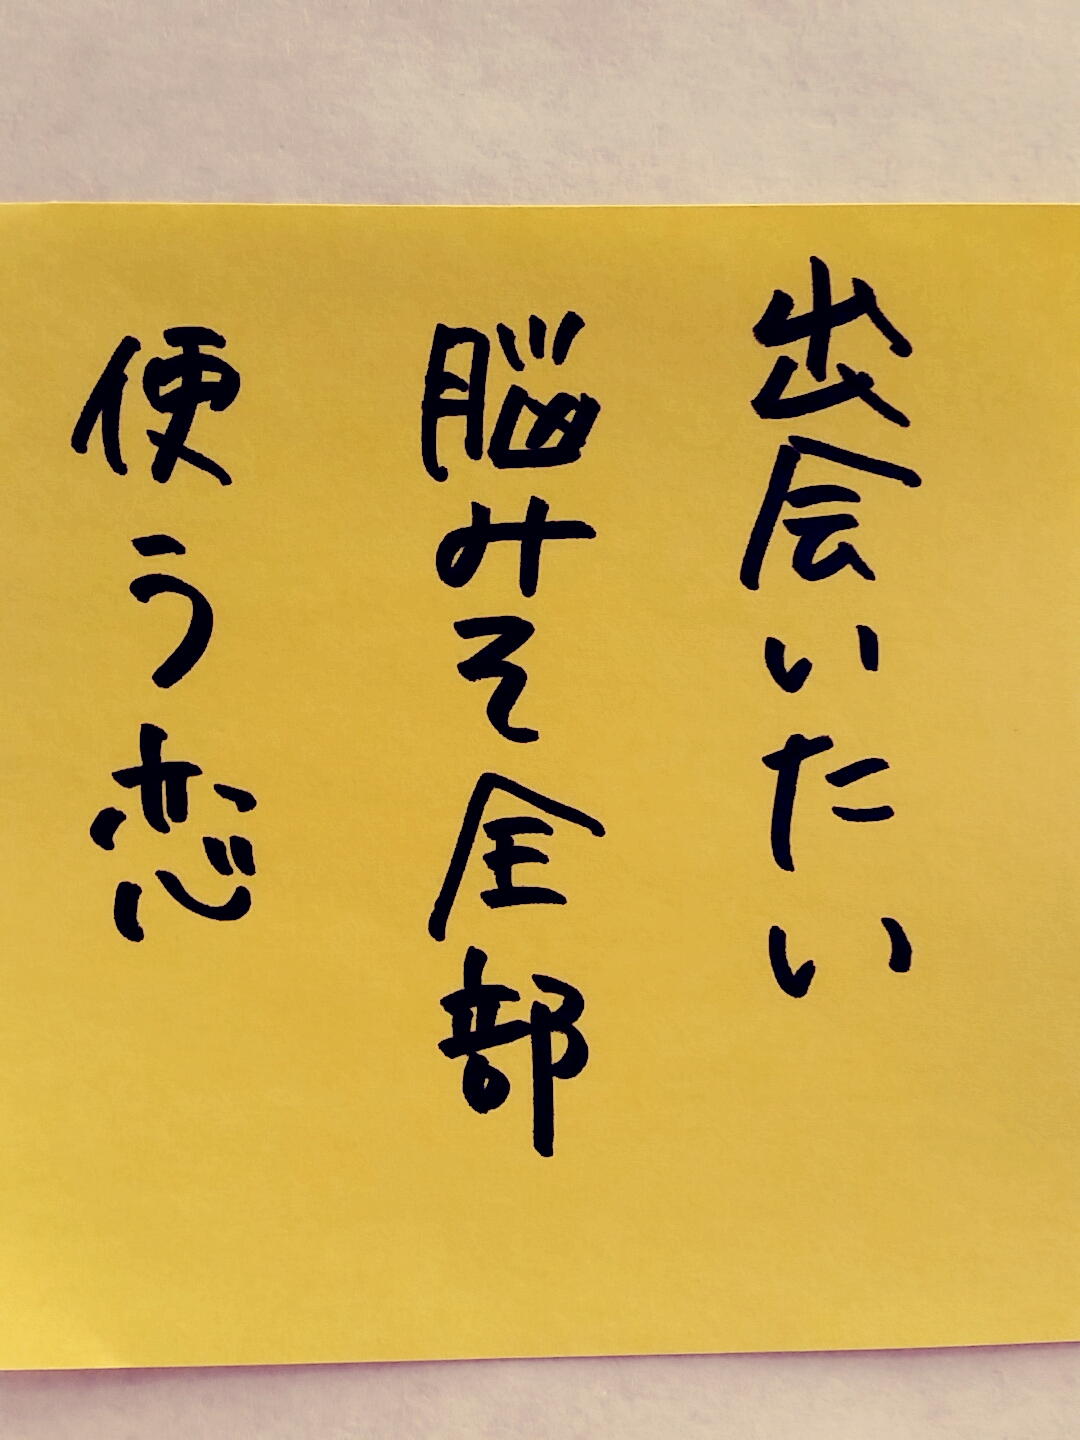 出会いたい
脳みそ全部
使う恋